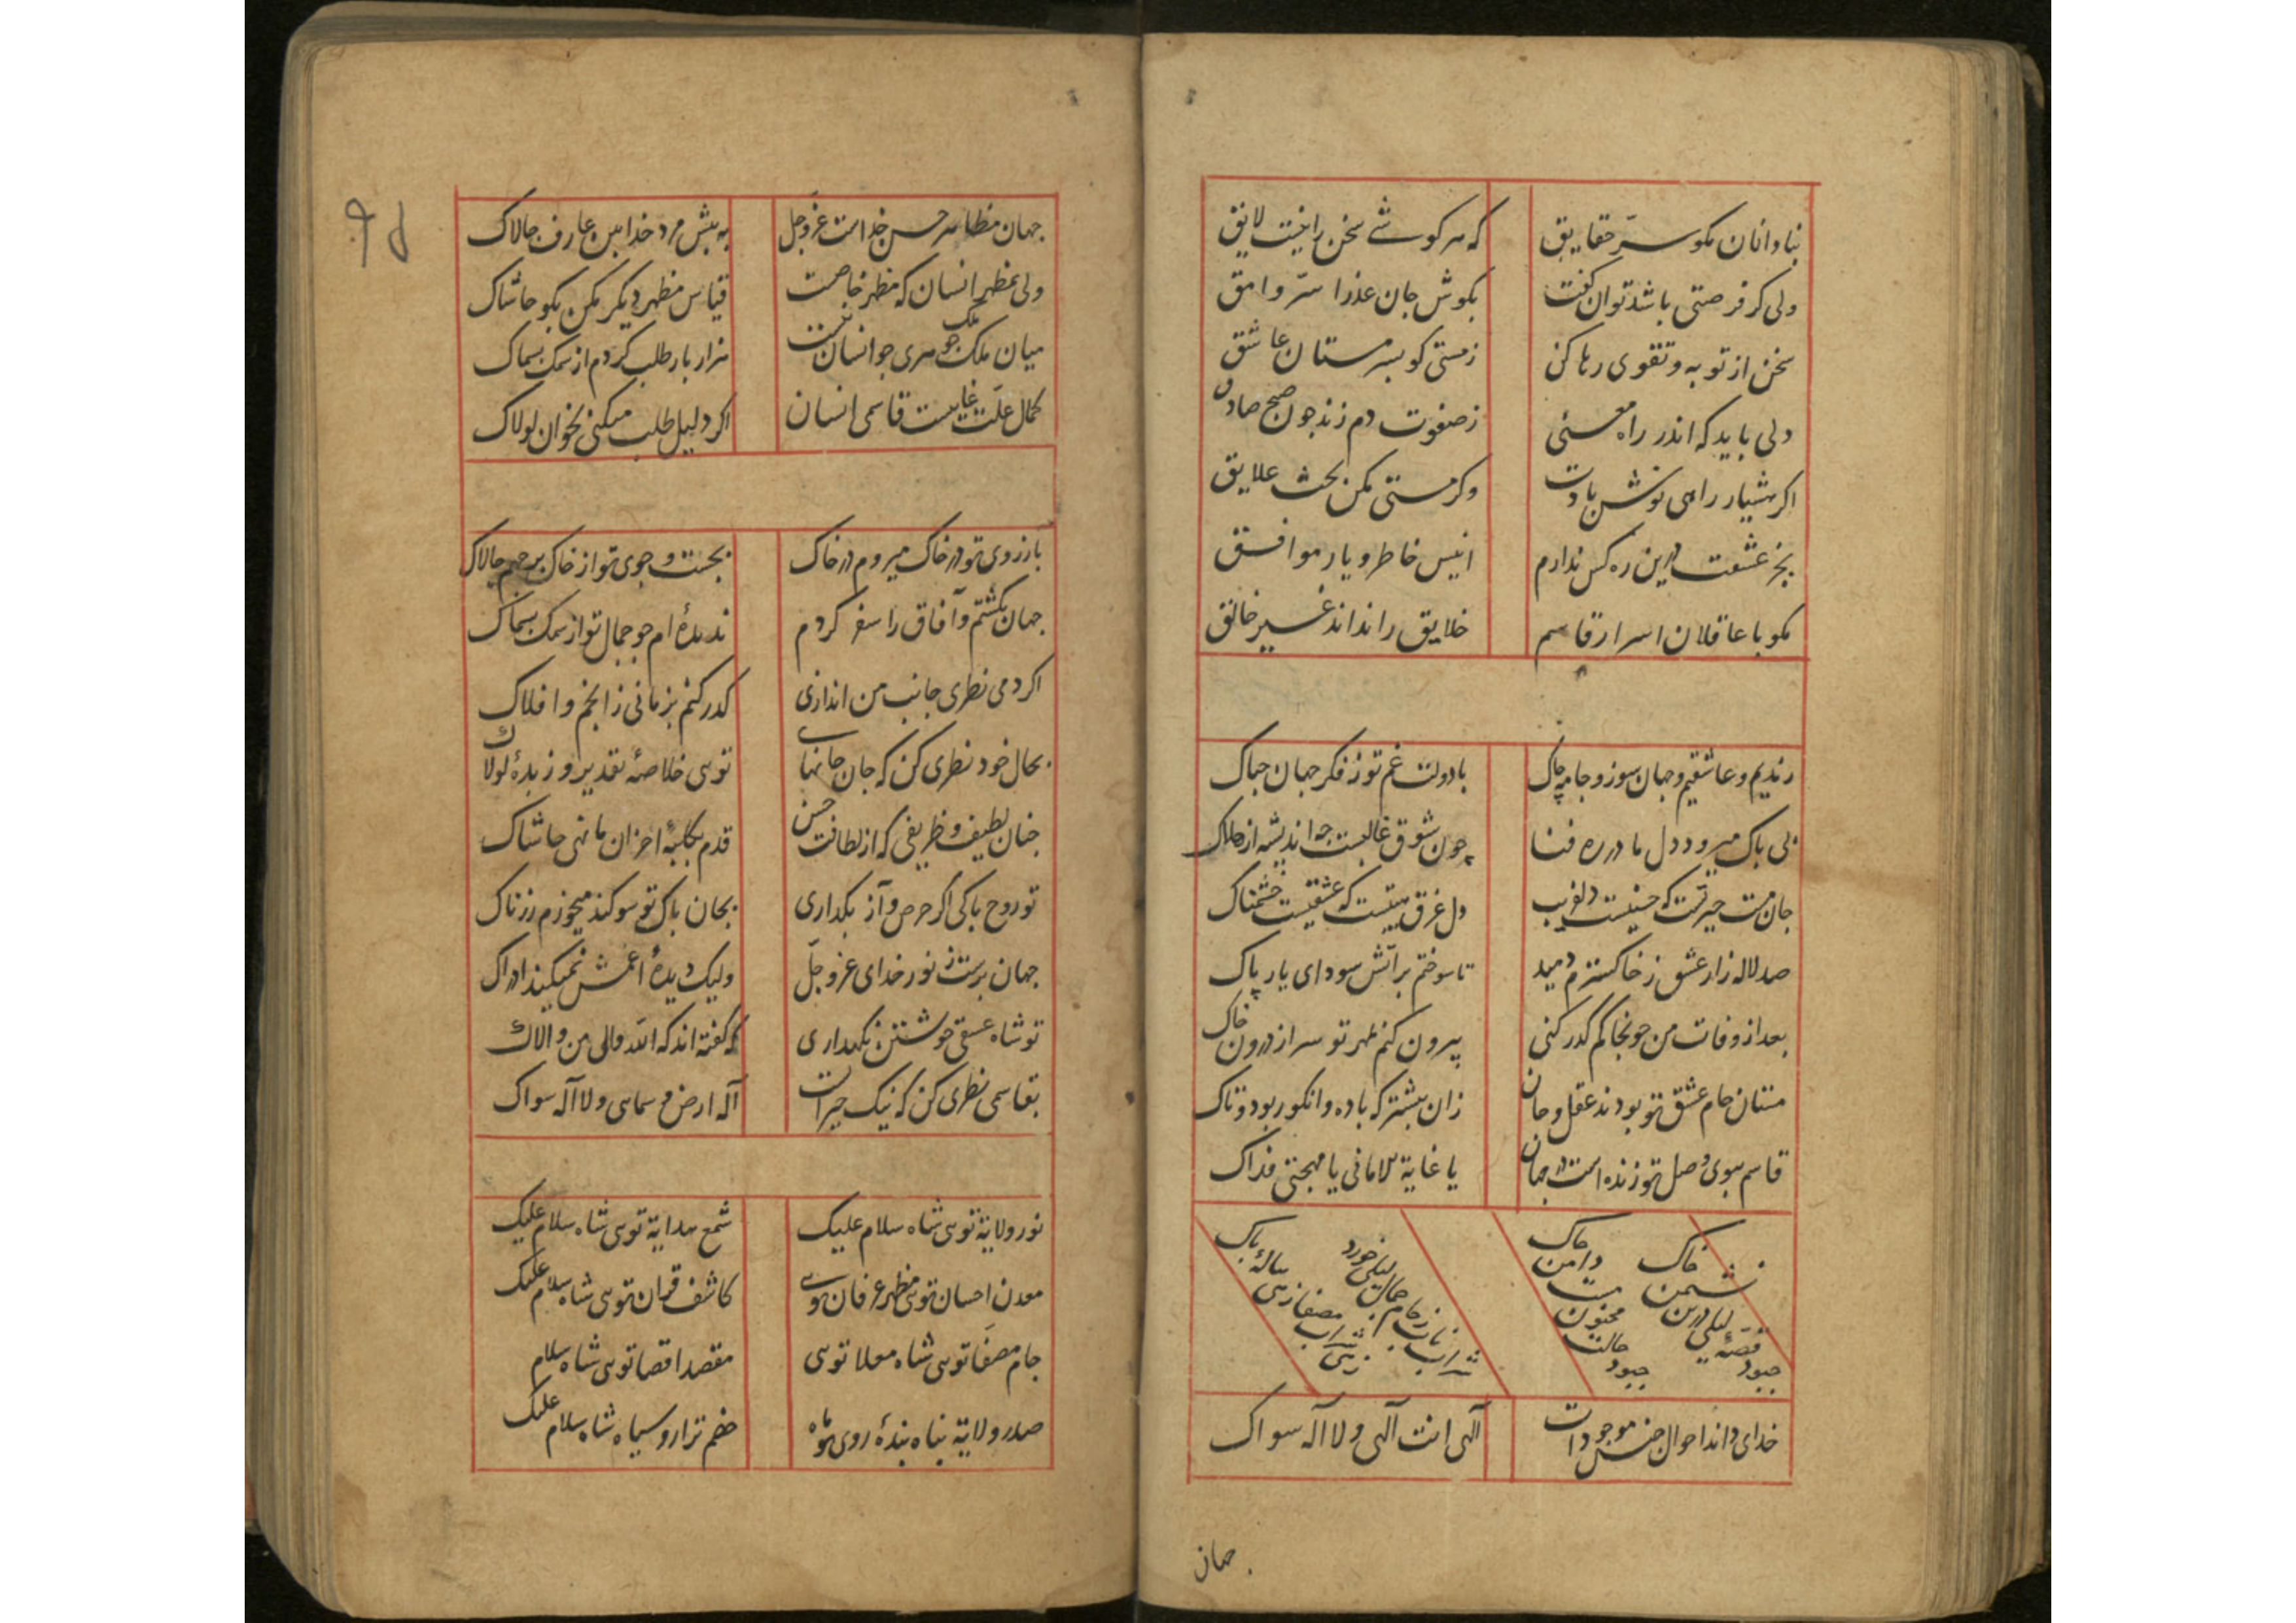 بنادانان مکو سرّ حقایق
که هر کوشے سخن را نیست لایق
ولی کر فرصتی باشد توان کفت
بکوش جان عذرا سرّ وامق
سخن از توبه و تقوی رها کن
زمستی کو بسرمستان عاشق
دلی باید که اندر راه معنی
ز صفوت دم زند جون صبح صادق
اکر هشیار راهی نوش بادت
وکر مستی مکن بحث علایق
بجز عشقت درین ره کس ندارم
انیس خاطر و یار موافق
مکو با عاقلان اسرار قاسم
خلایق را نداند غیر خالق
رندیم و عاشقیم و جهان سوز و جامه چاک
با دولت غم تو ز فکر جهان جباک
بی باک میرود دل ما در ره فنا
چون شوق غالبست جه اندیشه از هلاک
جان مست حیرتست که حسنیست دلفریب
دل غرق هیبتست که عشقیست خشمناک
صد لاله زار عشق ز خاکسترم دمید
تا سوختم بر آتش سودای یار پاک
بعد از وفات من جو بخاکم کذر کنی
بیرون کنم بمهر تو سر از درون خاک
مستان جام عشق تو بودند عقل و جان
زان بیشتر که باده و انکور بود و تاک
قاسم ببوی وصل تو زنده است در جهان
یا غایة الامانی یا مهجتی فداک
جبود قصّهٔ لیلی درین نشیمن خاک
جبود حالت مجنون مست دامن جاک
شراب ناب ز جام جمال لیلی خورد
زهی شراب مصفا زهی بیالهٔ باک
خدای داند احوال جنس موجودات
آلهی انت آلهی ولا آله سواک
جهان
جهان مظاهر حسن خداست عزّ و جل
به بیش مرد خدابین عارف جالاک
ولی بمظهر انسان که مظهر خاصست
قیاس مظهر دیکر مکن بکو حاشاک
میان ملک ملک جوهری جو انسان نیست
هزار بار طلب کردم از سمک بسماک
کمال علّت غاییست قاسمی انسان
اکر دلیل طلب میکنی بخوان لولاک
بارزوی تو در خاک میروم در خاک
بجست و جوی تو از خاک برجهم جالاک
جهان بکشتم و آفاق را سفر کردم
ندیده ام جو جمال تو از سمک بسماک
اکر دمی نظری جانب من اندازی
کذر کنم بزمانی ز انجم و افلاک
بحال خود نظری کن که جان جانهایی
تویی خلاصهٔ تقدیر و زبدهٔ لولاک
جنان لطیف و ظریفی که از لطافت حسن
قدم بکلبهٔ احزان ما نهی حاشاک
تو روح باکی اکر حرص و آز بکذاری
بجان باک تو سوکند میخورم زرناک
جهان برست ز نور خدای عزّ و جلّ
ولیک دیدهٔ اعمش نمیکند ادراک
تو شاه عشقی خوشتن نکهداری
که کفته اند که الله والی من والاک
بقاسمی نظری کن که نیک حیرانست
آله ارض و سمایی ولا آله سواک
نور ولایة تویی شاه سلام علیک
شمع هدایة تویی شاه سلام علیک
معدن احسان تویی مظهر عرفان تویی
کاشف قران تویی شاه سلام علیک
جام مصفا تویی شاه معلا تویی
مقصد اقصا تویی شاه سلام علیک
صدر ولایة بناه بندهٔ روی تو ماه
خصم ترا رو سیاه شاه سلام علیک